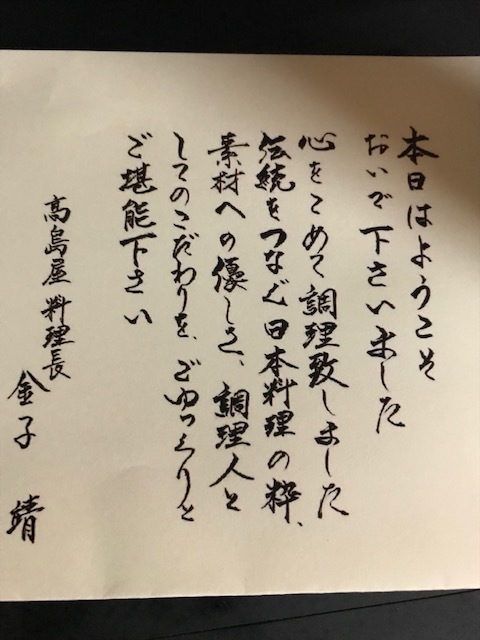 本日はようこそ
おいで下さいました
心をこめて調理致しました
伝統をつなぐ日本料理の粋、
素材への優しさ、調理人と
してのこだわりを、ごゆっくりと
ご堪能下さい
高島屋料理長
金子 靖